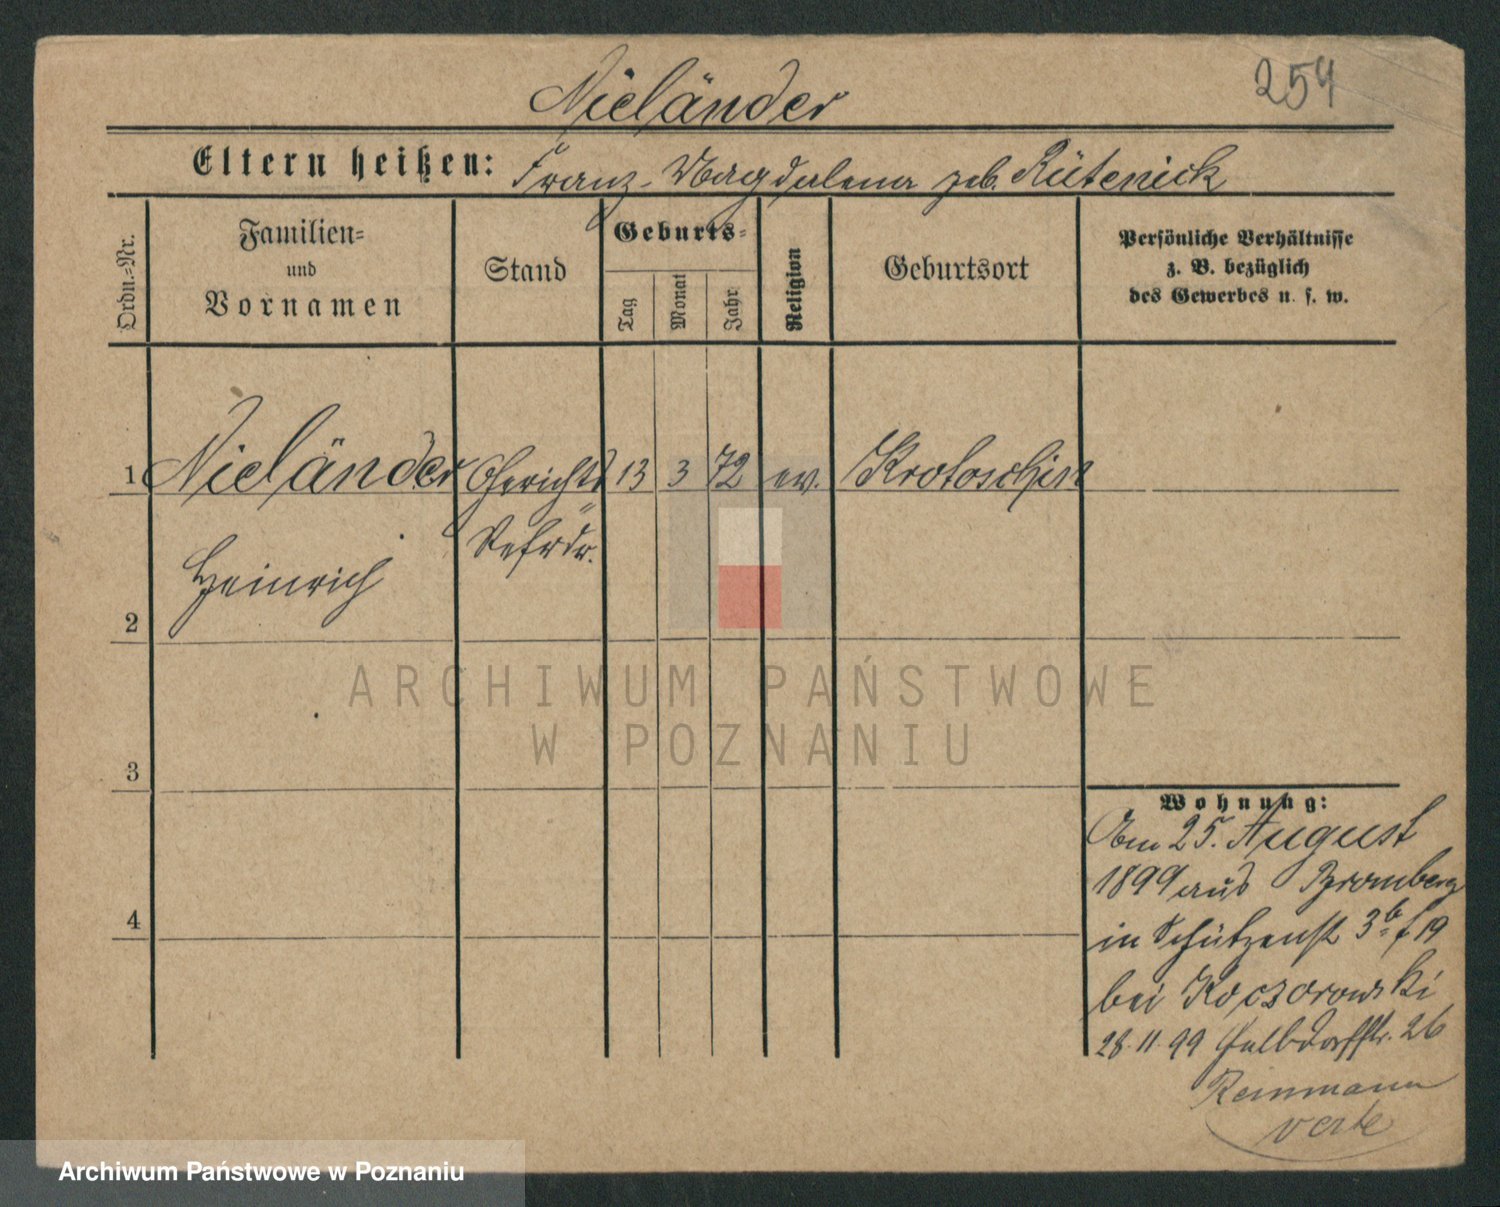 254
Nieländer
Eltern heißen: Franz - Magdalena geb. Rütenick
Ordn.=Nr.
Familien=
und
Vornamen
Stand
Geburts=
Tag
Monat
Jahr
Religion
Geburtsort
Persönliche Verhältnisse
z. B. bezüglich
des Gewerbes u. s. w.
1 Nieländer Gerichts 13 3 72 ev. Krotoschin
Refrdr.
Heinrich
2
3
4
ARCHIWUM PAŃSTWOWE
W POZNANIU
Wohnung:
Am 25. August
1899 aus Bromberg
in Schützenst 3 19
bei Koczorowski
28.11.99 Halbdorfstr. 26
Remmann
verte
Archiwum Państwowe w Poznaniu